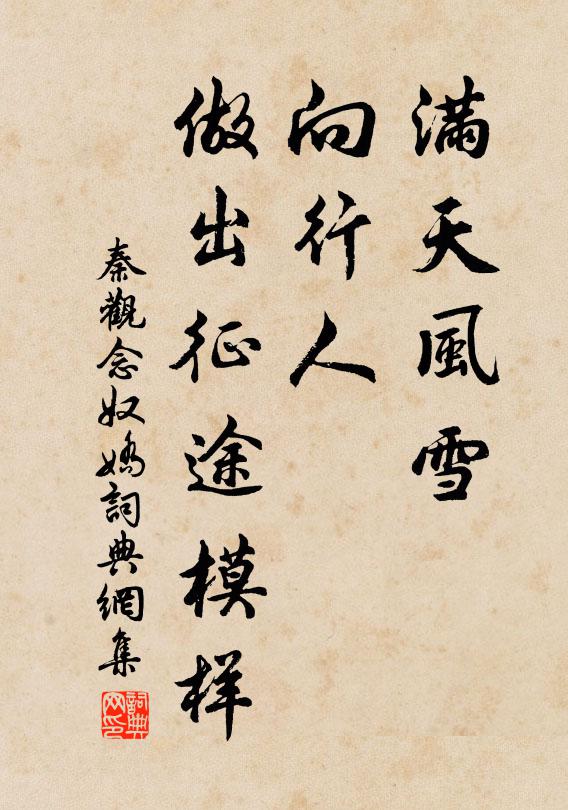 滿天風雪
向行人
做出征途模样
秦觀念奴嬌詞典網集
詞典
网印